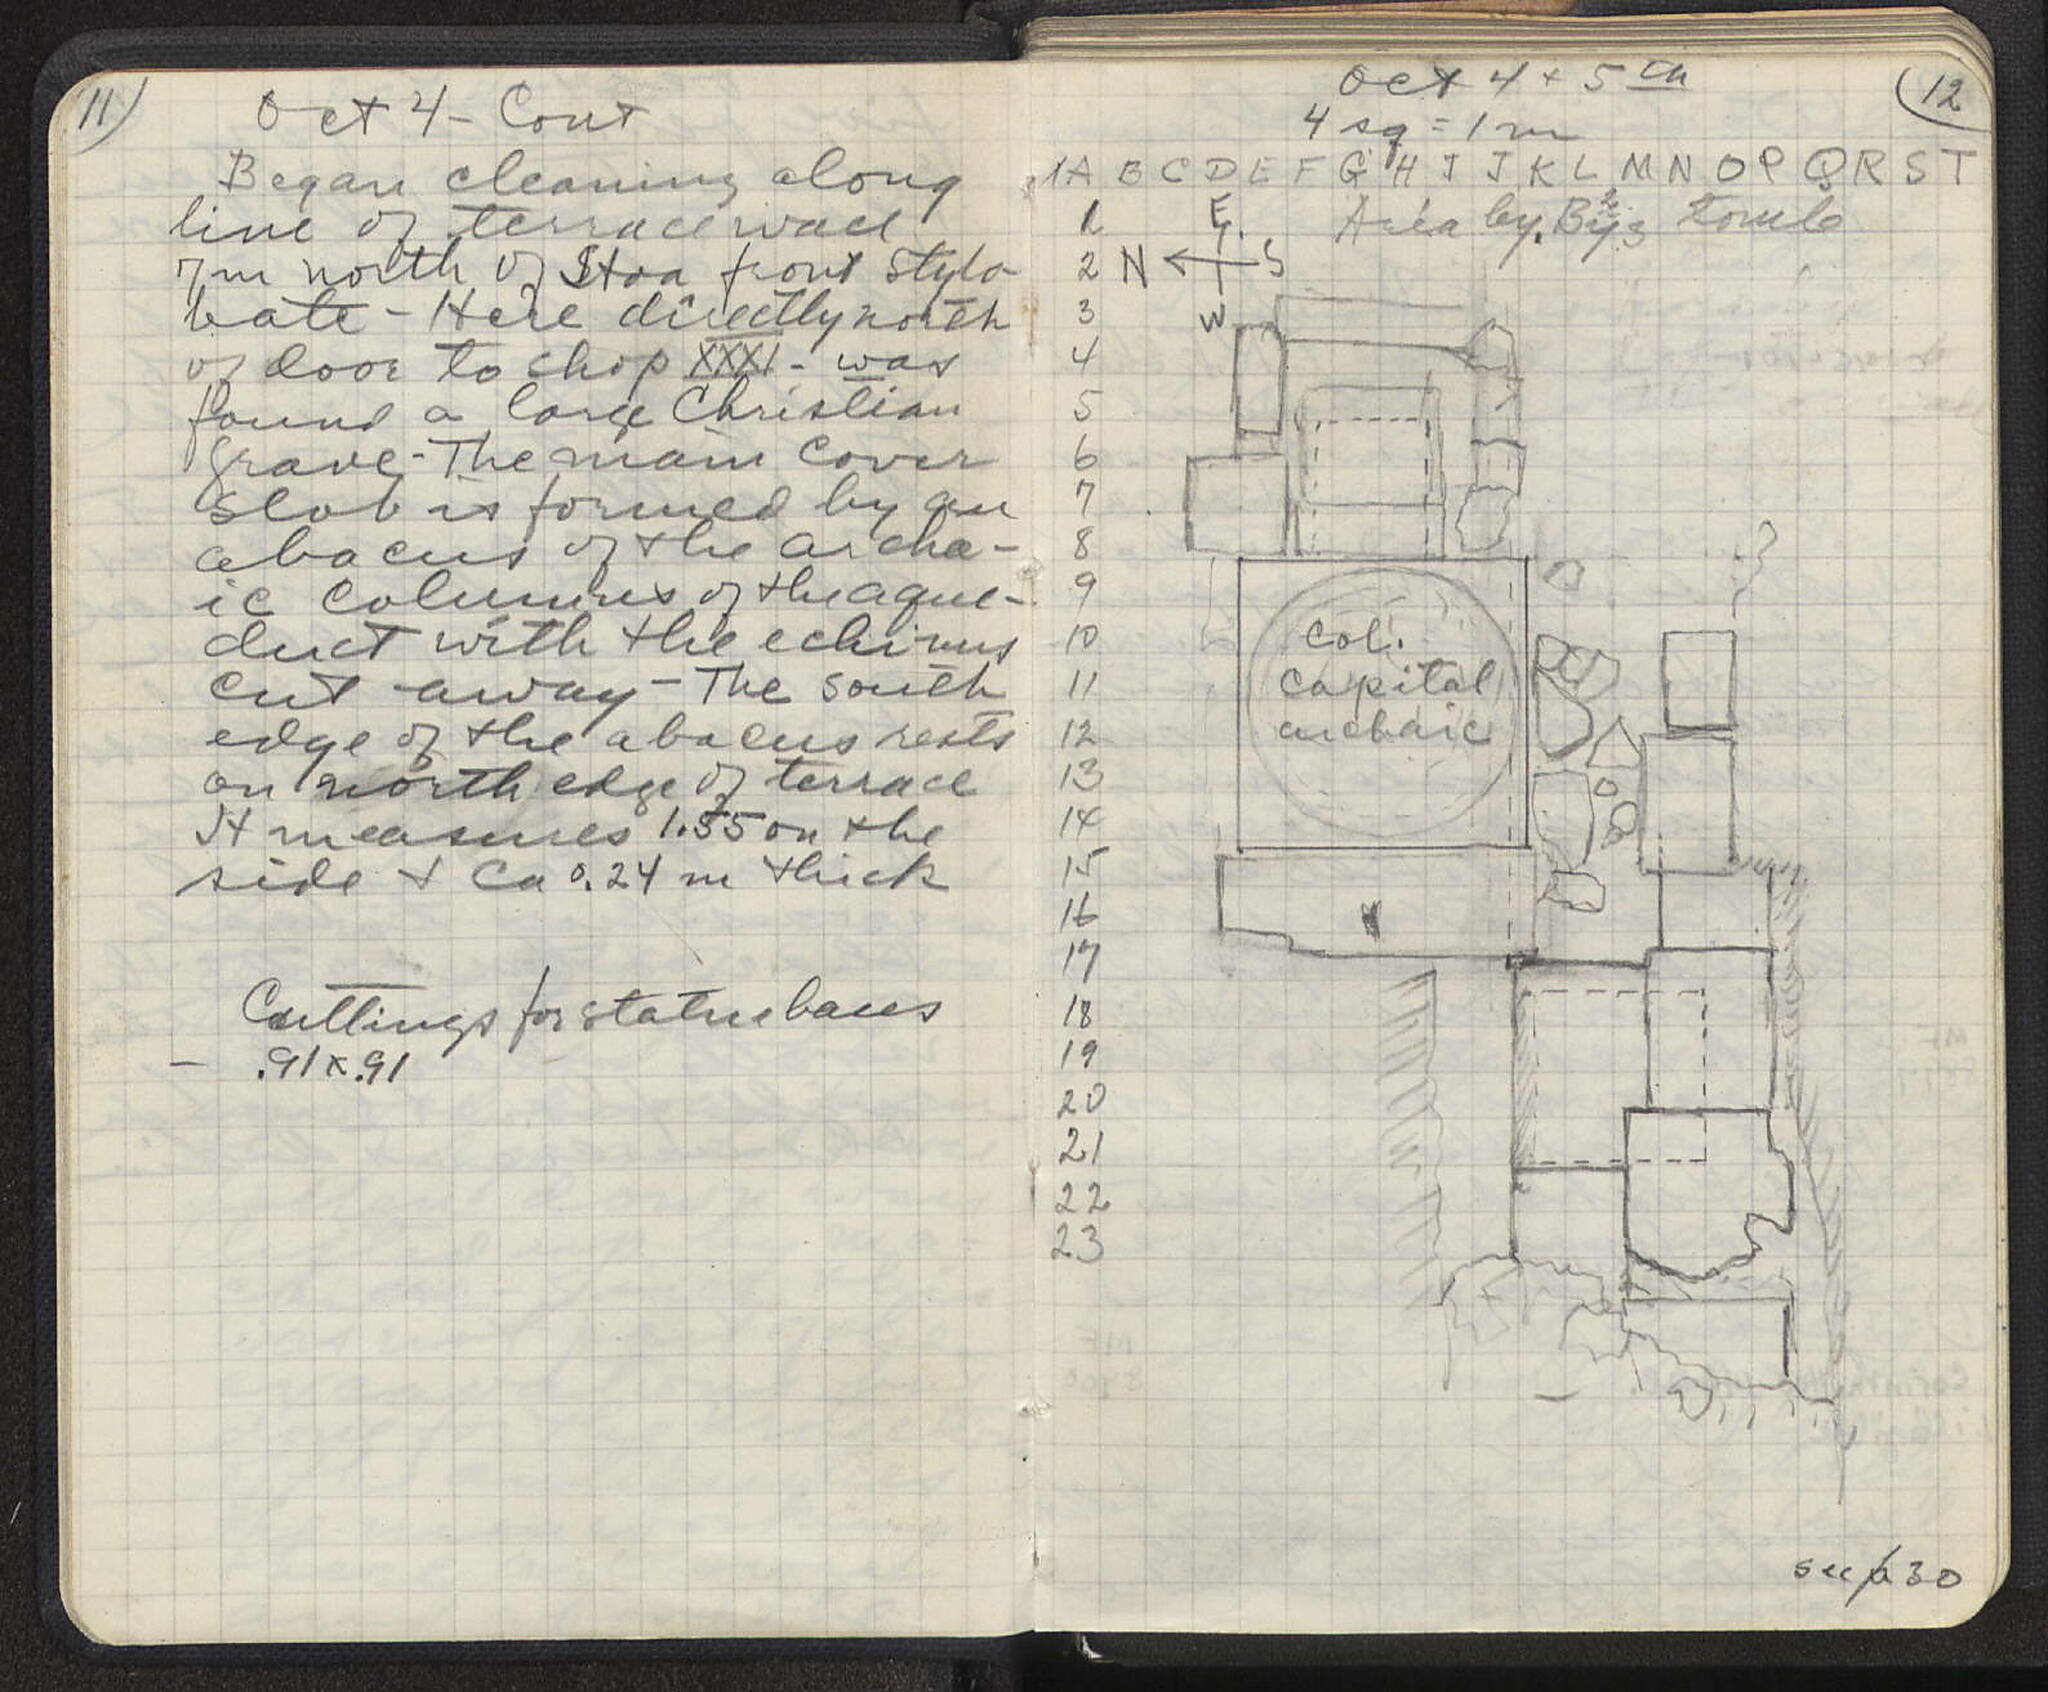 11
Oct 4 - Cont
Began cleaning along
line of terrace wall
7m north of Stoa front Stylo-
bate - Here directly north
of door to shop XXXI - was
found a large Christian
grave - The main cover
slab is formed by an
abacus of the archa-
ic columns of the aque-
duct with the echinus
cut away - The south
edge of the abacus rests
on north edge of terrace
It measures 1.55 on the
side + Ca 0.24 m thick
Cuttings for statue bases
- .91 x .91
12
Oct 4 + 5th
4 sq = 1 m
A B C D E F G H I J K L M N O P Q R S T
1
E
Area by Byz tomb
2
N
S
3
W
4
5
6
7
8
9
10
11
12
13
14
15
16
17
18
19
20
21
22
23
Col.
Capital
archaic
see p 30